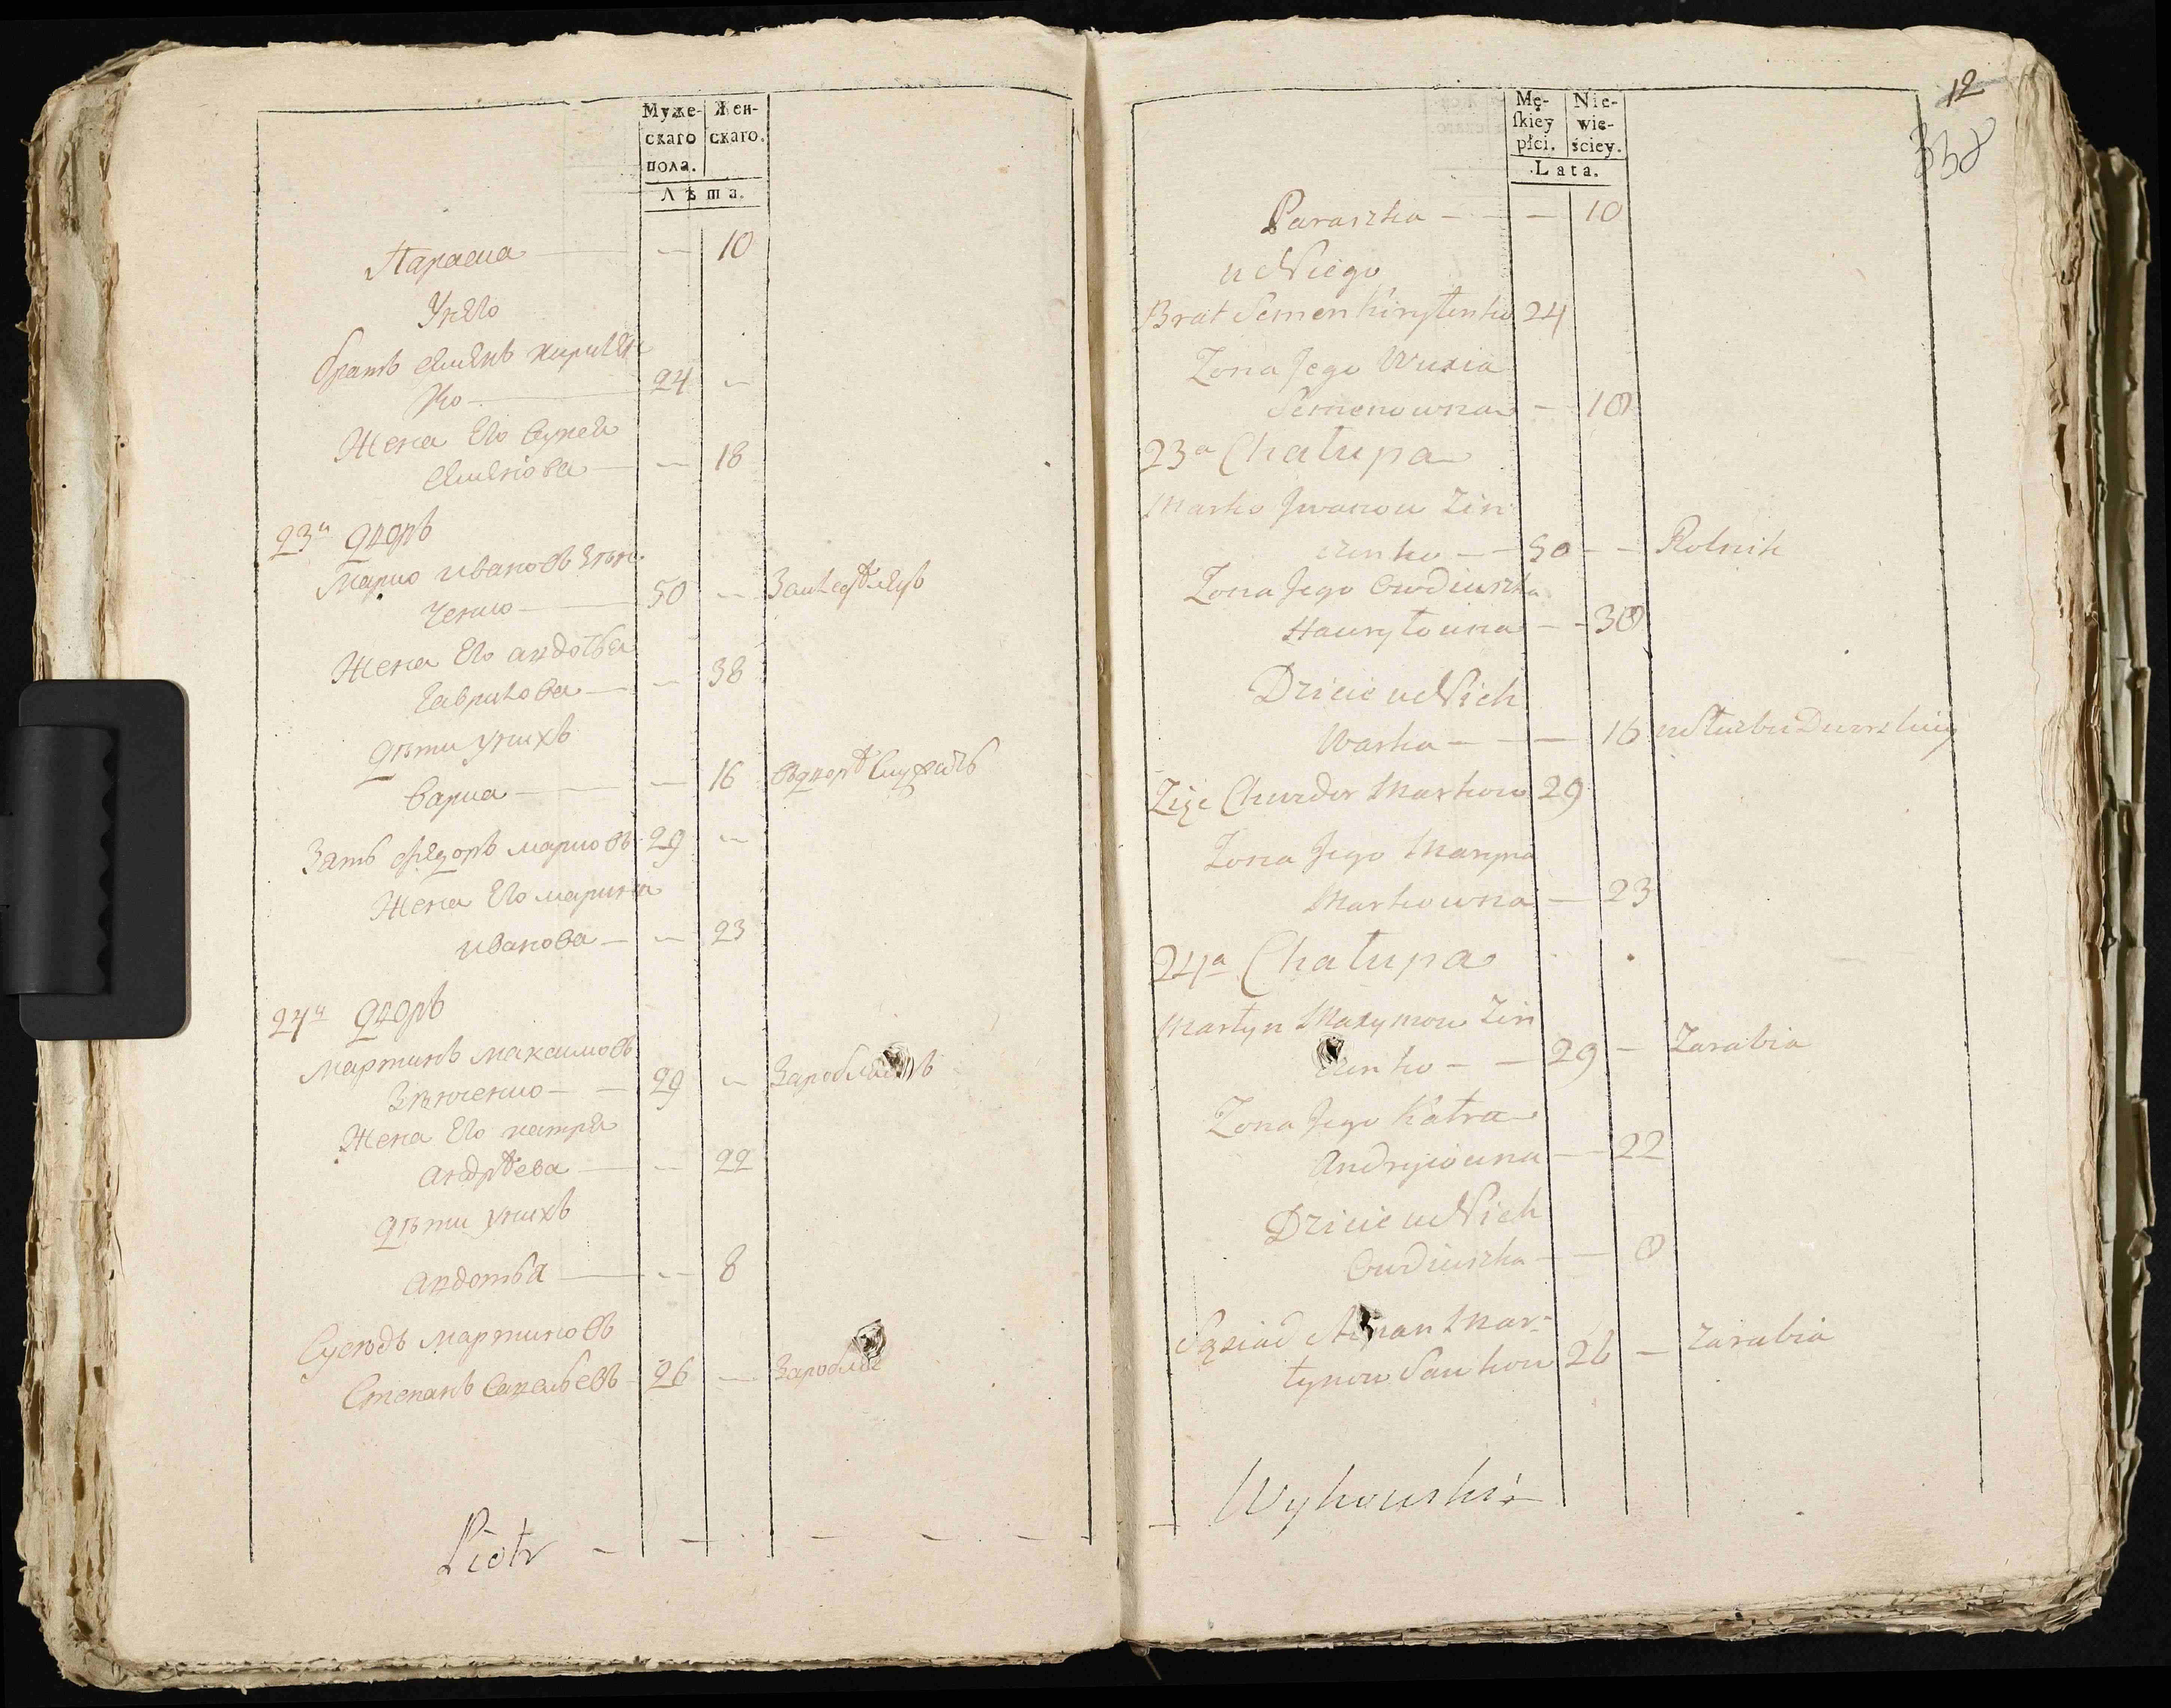 Муже- Жен-
скаго скаго.
пола.
Лѣта.
Параска — — 10
Унего
братъ семенъ кириле
ко — 24 —
Жена Его вукея
семенова — — 18
23й дворъ
Марко ивановъ Зѣн
ченко — 50 —
Жена Его
гаврилова — — 38
дѣти унихъ
варка — — 16
Зять федоръ марковъ 29 —
Жена Его марина
иванова — — 23
24й дворъ
мартинъ максимовъ
Зѣнченко — — 29 —
Жена Его катря
андрѣева — — 22
дѣти унихъ
— — 8
Сусѣдъ мартиновъ
Степанъ 26 —
Piotr — — — — —
12
338
Mę- Nie-
ſkiey wie-
płci. ściey.
Lata.
Paraszka — — — 10
u Niego
Brat Semen Kiryłenko 24
Zona Jego Wuxia
Semenowna — 18
23a Chałupa
Marko Jwanow Zin
czenko — — 50 — — Rolnik
Zona Jego Owdiuszka
Hawryłowna — — 38
Dzieie u Nich
Warka — — — 16 w Służbie Dworskiey
Zięć Chwedor Markow 29
Zona Jego Maryna
Markowna — 23
24a Chałupa
Martyn Maxymow Zin
czenko — — 29 — Zarabia
Zona Jego Katra
Andryiowna — — 22
Dzieie u Nich
Owdiuszka — — 8
Sąsiad Mar-
tynow Sawkow 26 — Zarabia
Wykowski